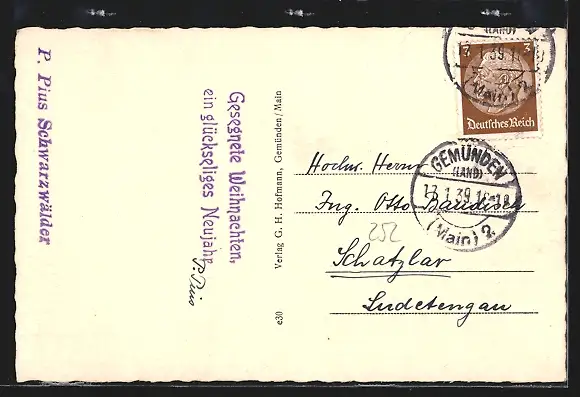 P. Pius Schwarzwälder
Gesegnete Weihnachten,
ein glückseliges Neujahr
P. Pius
Verlag G. H. Hofmann, Gemünden/Main
c30
3 3
Deutsches Reich
(LAND)
1 39 1
(Main) 2
GEMÜNDEN
(LAND)
1.39.1
(Main) 2
Hochw. Herrn
Ing. Otto Baudisch
252
Schatzlar
Sudetengau